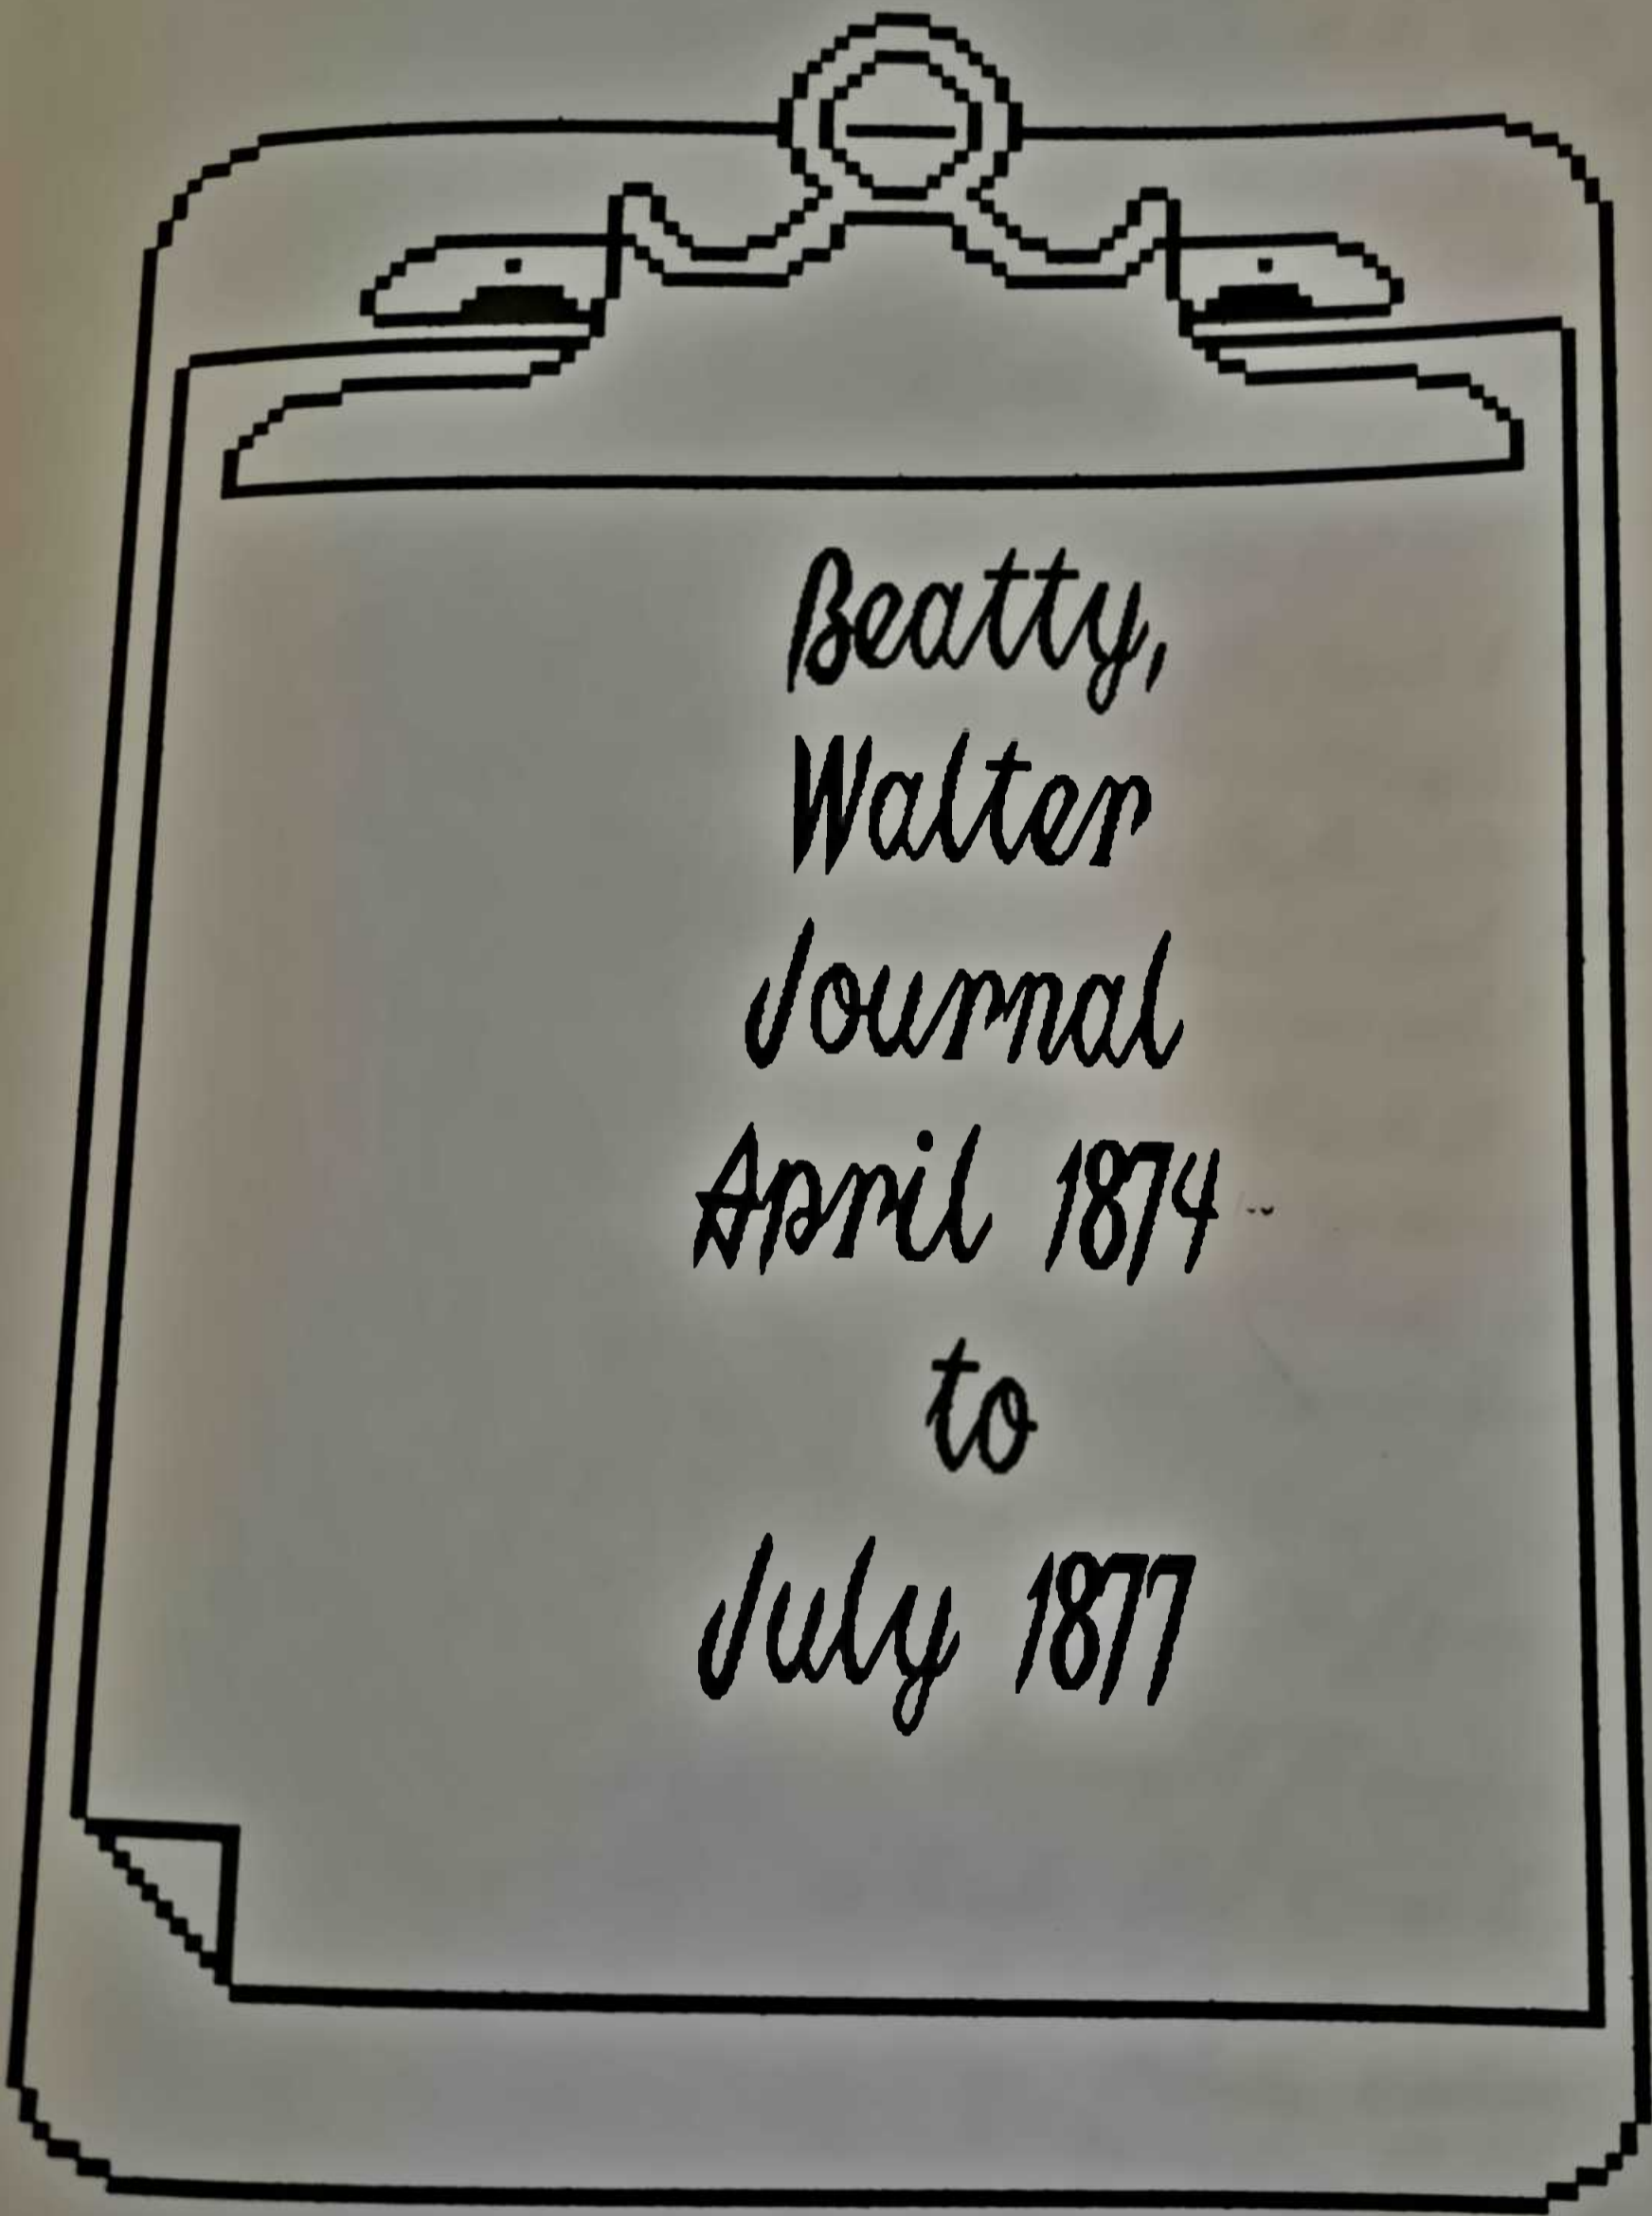 Beatty,
Walter
Journal
April 1874
to
July 1877